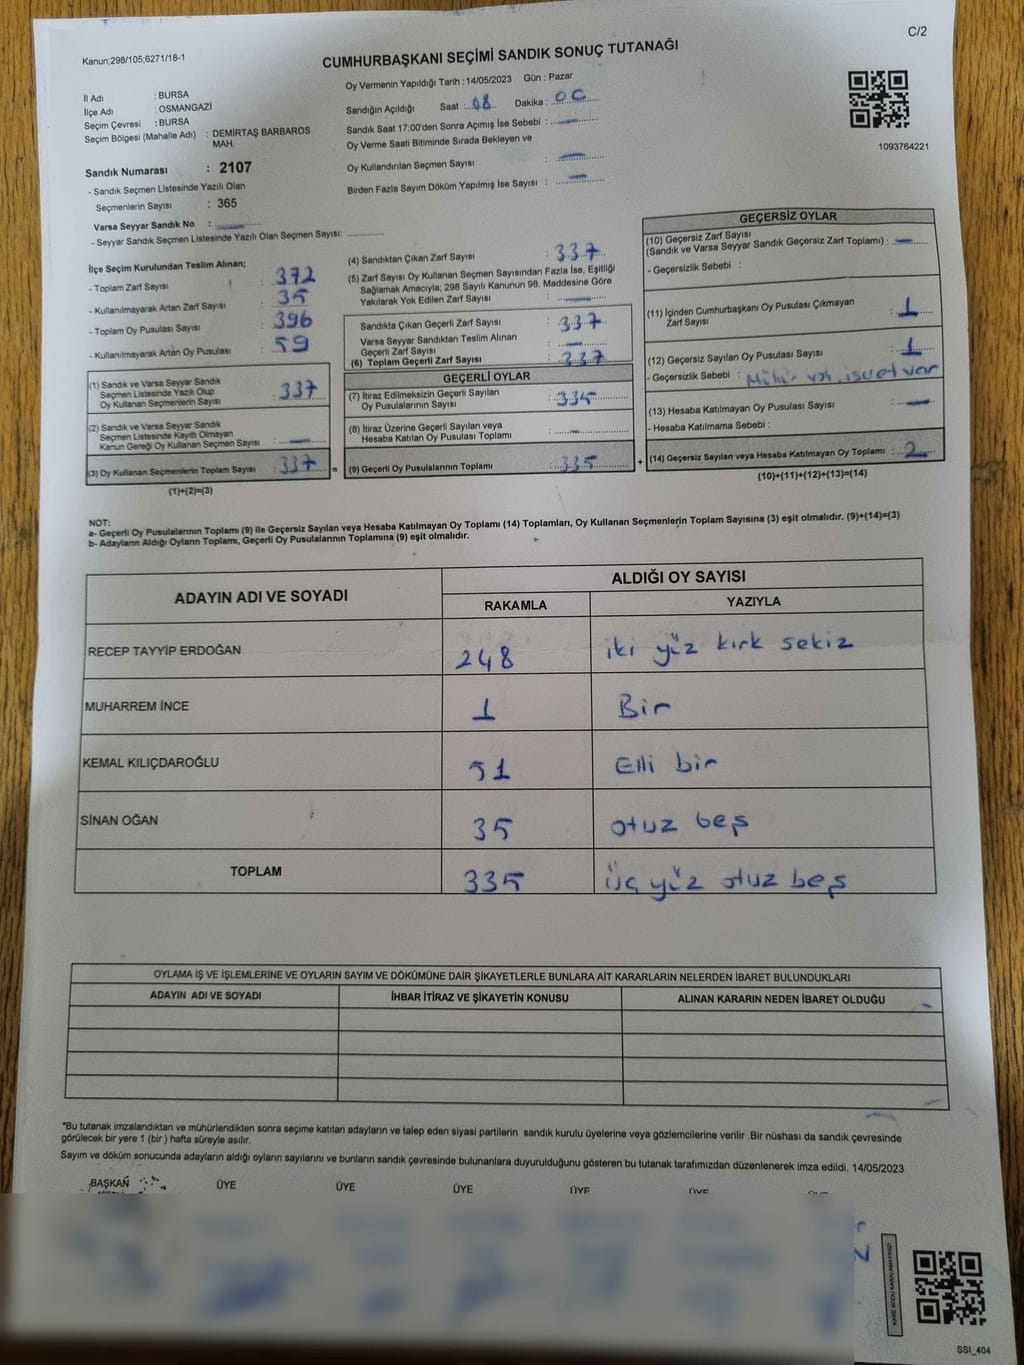 C/2
Kanun;298/105;6271/18-1
CUMHURBAŞKANI SEÇİMİ SANDIK SONUÇ TUTANAĞI
İl Adı : BURSA
İlçe Adı : OSMANGAZİ
Seçim Çevresi : BURSA
Seçim Bölgesi (Mahalle Adı) : DEMİRTAŞ BARBAROS
MAH.
Sandık Numarası : 2107
- Sandık Seçmen Listesinde Yazılı Olan
Seçmenlerin Sayısı : 365
Varsa Seyyar Sandık No :
- Seyyar Sandık Seçmen Listesinde Yazılı Olan Seçmen Sayısı:
Oy Vermenin Yapıldığı Tarih : 14/05/2023 Gün : Pazar
Sandığın Açıldığı Saat : 08 Dakika :
Sandık Saat 17:00'den Sonra Açımış İse Sebebi : —
Oy Verme Saati Bitiminde Sırada Bekleyen ve
Oy Kullandırılan Seçmen Sayısı : —
Birden Fazla Sayım Döküm Yapılmış İse Sayısı : —
1093764221
İlçe Seçim Kurulundan Teslim Alınan;
- Toplam Zarf Sayısı : 372
- Kullanılmayarak Artan Zarf Sayısı : 35
- Toplam Oy Pusulası Sayısı : 396
- Kullanılmayarak Artan Oy Pusulası : 59
(1) Sandık ve Varsa Seyyar Sandık
Seçmen Listesinde Yazılı Olup
Oy Kullanan Seçmenlerin Sayısı : 337
(2) Sandık ve Varsa Seyyar Sandık
Seçmen Listesinde Kayıtlı Olmayan
Kanun Gereği Oy Kullanan Seçmen Sayısı : —
(3) Oy Kullanan Seçmenlerin Toplam Sayısı : 337 =
(1)+(2)=(3)
(4) Sandıktan Çıkan Zarf Sayısı : 337
(5) Zarf Sayısı Oy Kullanan Seçmen Sayısından Fazla İse, Eşitliği
Sağlamak Amacıyla; 298 Sayılı Kanunun 98. Maddesine Göre
Yakılarak Yok Edilen Zarf Sayısı : —
Sandıkta Çıkan Geçerli Zarf Sayısı : 337
Varsa Seyyar Sandıktan Teslim Alınan
Geçerli Zarf Sayısı : —
(6) Toplam Geçerli Zarf Sayısı : 337
GEÇERLİ OYLAR
(7) İtiraz Edilmeksizin Geçerli Sayılan
Oy Pusulalarının Sayısı : 335
(8) İtiraz Üzerine Geçerli Sayılan veya
Hesaba Katılan Oy Pusulası Toplamı : —
(9) Geçerli Oy Pusulalarının Toplamı : 335 +
GEÇERSİZ OYLAR
(10) Geçersiz Zarf Sayısı
(Sandık ve Varsa Seyyar Sandık Geçersiz Zarf Toplamı) : —
- Geçersizlik Sebebi :
(11) İçinden Cumhurbaşkanı Oy Pusulası Çıkmayan
Zarf Sayısı : 1
(12) Geçersiz Sayılan Oy Pusulası Sayısı : 1
- Geçersizlik Sebebi : Mühür yok, işaret var
(13) Hesaba Katılmayan Oy Pusulası Sayısı : —
- Hesaba Katılmama Sebebi :
(14) Geçersiz Sayılan veya Hesaba Katılmayan Oy Toplamı : 2
(10)+(11)+(12)+(13)=(14)
NOT:
a- Geçerli Oy Pusulalarının Toplamı (9) ile Geçersiz Sayılan veya Hesaba Katılmayan Oy Toplamı (14) Toplamları, Oy Kullanan Seçmenlerin Toplam Sayısına (3) eşit olmalıdır. (9)+(14)=(3)
b- Adayların Aldığı Oyların Toplamı, Geçerli Oy Pusulalarının Toplamına (9) eşit olmalıdır.
ADAYIN ADI VE SOYADI ALDIĞI OY SAYISI
RAKAMLA YAZIYLA
RECEP TAYYİP ERDOĞAN 248 iki yüz kırk sekiz
MUHARREM İNCE 1 Bir
KEMAL KILIÇDAROĞLU 51 Elli bir
SİNAN OĞAN 35 otuz beş
TOPLAM 335 üç yüz otuz beş
OYLAMA İŞ VE İŞLEMLERİNE VE OYLARIN SAYIM VE DÖKÜMÜNE DAİR ŞİKAYETLERLE BUNLARA AİT KARARLARIN NELERDEN İBARET BULUNDUKLARI
ADAYIN ADI VE SOYADI İHBAR İTİRAZ VE ŞİKAYETİN KONUSU ALINAN KARARIN NEDEN İBARET OLDUĞU
*Bu tutanak imzalandıktan ve mühürlendikten sonra seçime katılan adayların ve talep eden siyasi partilerin sandık kurulu üyelerine veya gözlemcilerine verilir .Bir nüshası da sandık çevresinde
görülecek bir yere 1 (bir ) hafta süreyle asılır.
Sayım ve döküm sonucunda adayların aldığı oyların sayılarını ve bunların sandık çevresinde bulunanlara duyurulduğunu gösteren bu tutanak tarafımızdan düzenlenerek imza edildi. 14/05/2023
BAŞKAN ÜYE ÜYE ÜYE ÜYE ÜYE ÜYE
SSI_404